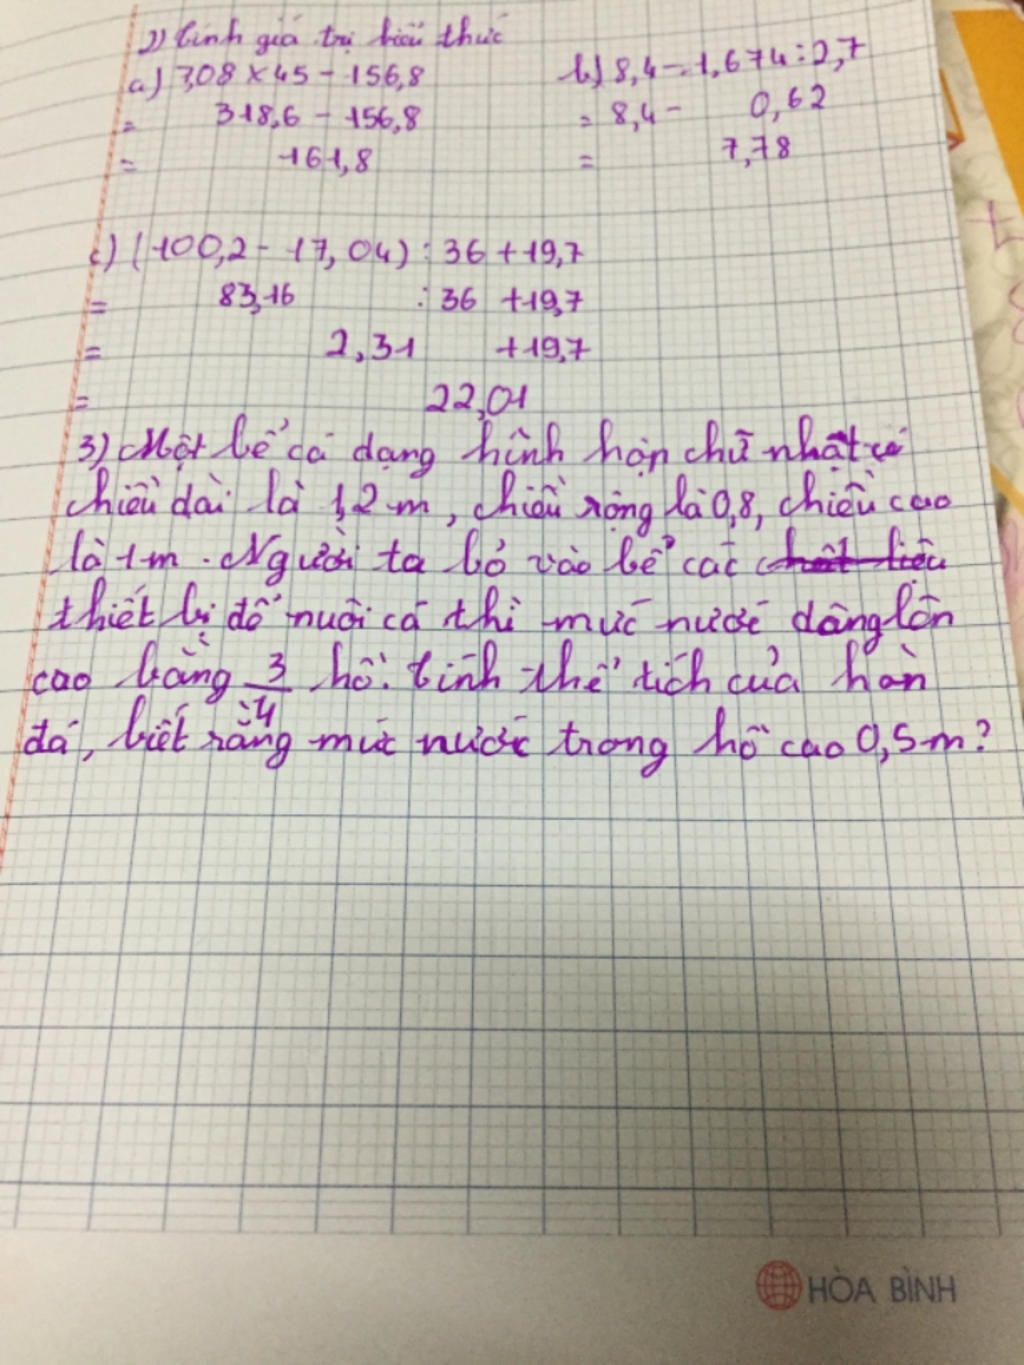 2) Tính giá trị biểu thức
a) 7,08 × 45 - 156,8
= 318,6 - 156,8
= 161,8
b) 8,4 - 1,674 : 2,7
= 8,4 - 0,62
= 7,78
c) (100,2 - 17,04) : 36 + 19,7
= 83,16 : 36 + 19,7
= 2,31 + 19,7
= 22,01
3) Một bể cá dạng hình hộp chữ nhật có
chiều dài là 1,2 m, chiều rộng là 0,8, chiều cao
là 1 m. Người ta bỏ vào bể các
thiết bị để nuôi cá thì mức nước dâng lên
cao bằng 3/4 hồ. Tính thể tích của hòn
đá, biết rằng mức nước trong hồ cao 0,5 m?
HÒA BÌNH